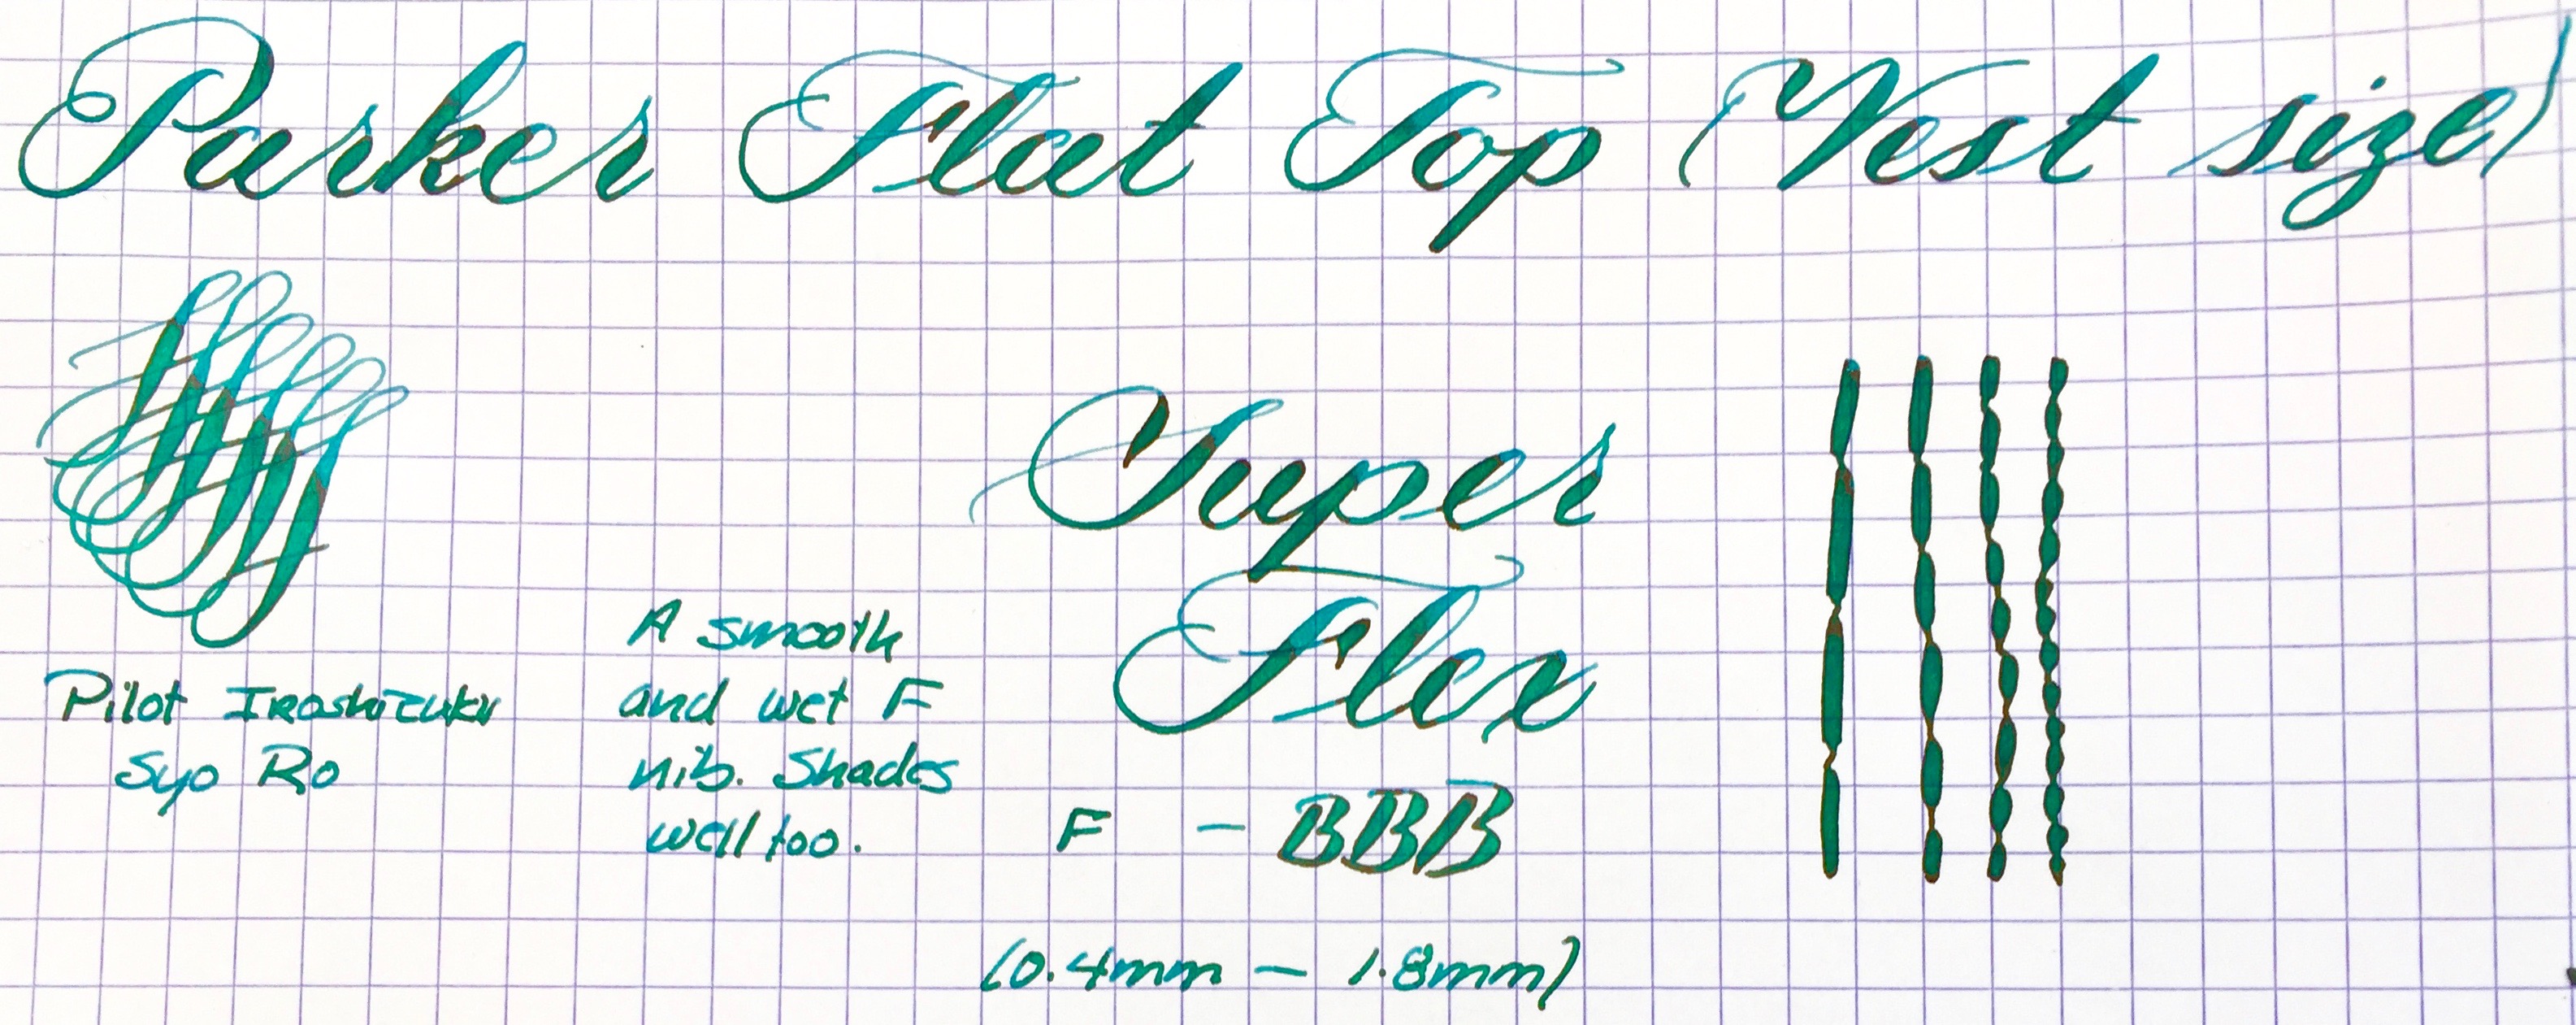 Parker Flat Top (Vest size)
Super
Flex
A smooth
and wet F
nib. Shades
well too.
Pilot Iroshizuku
Syo Ro
F - BBB
(0.4mm - 1.8mm)